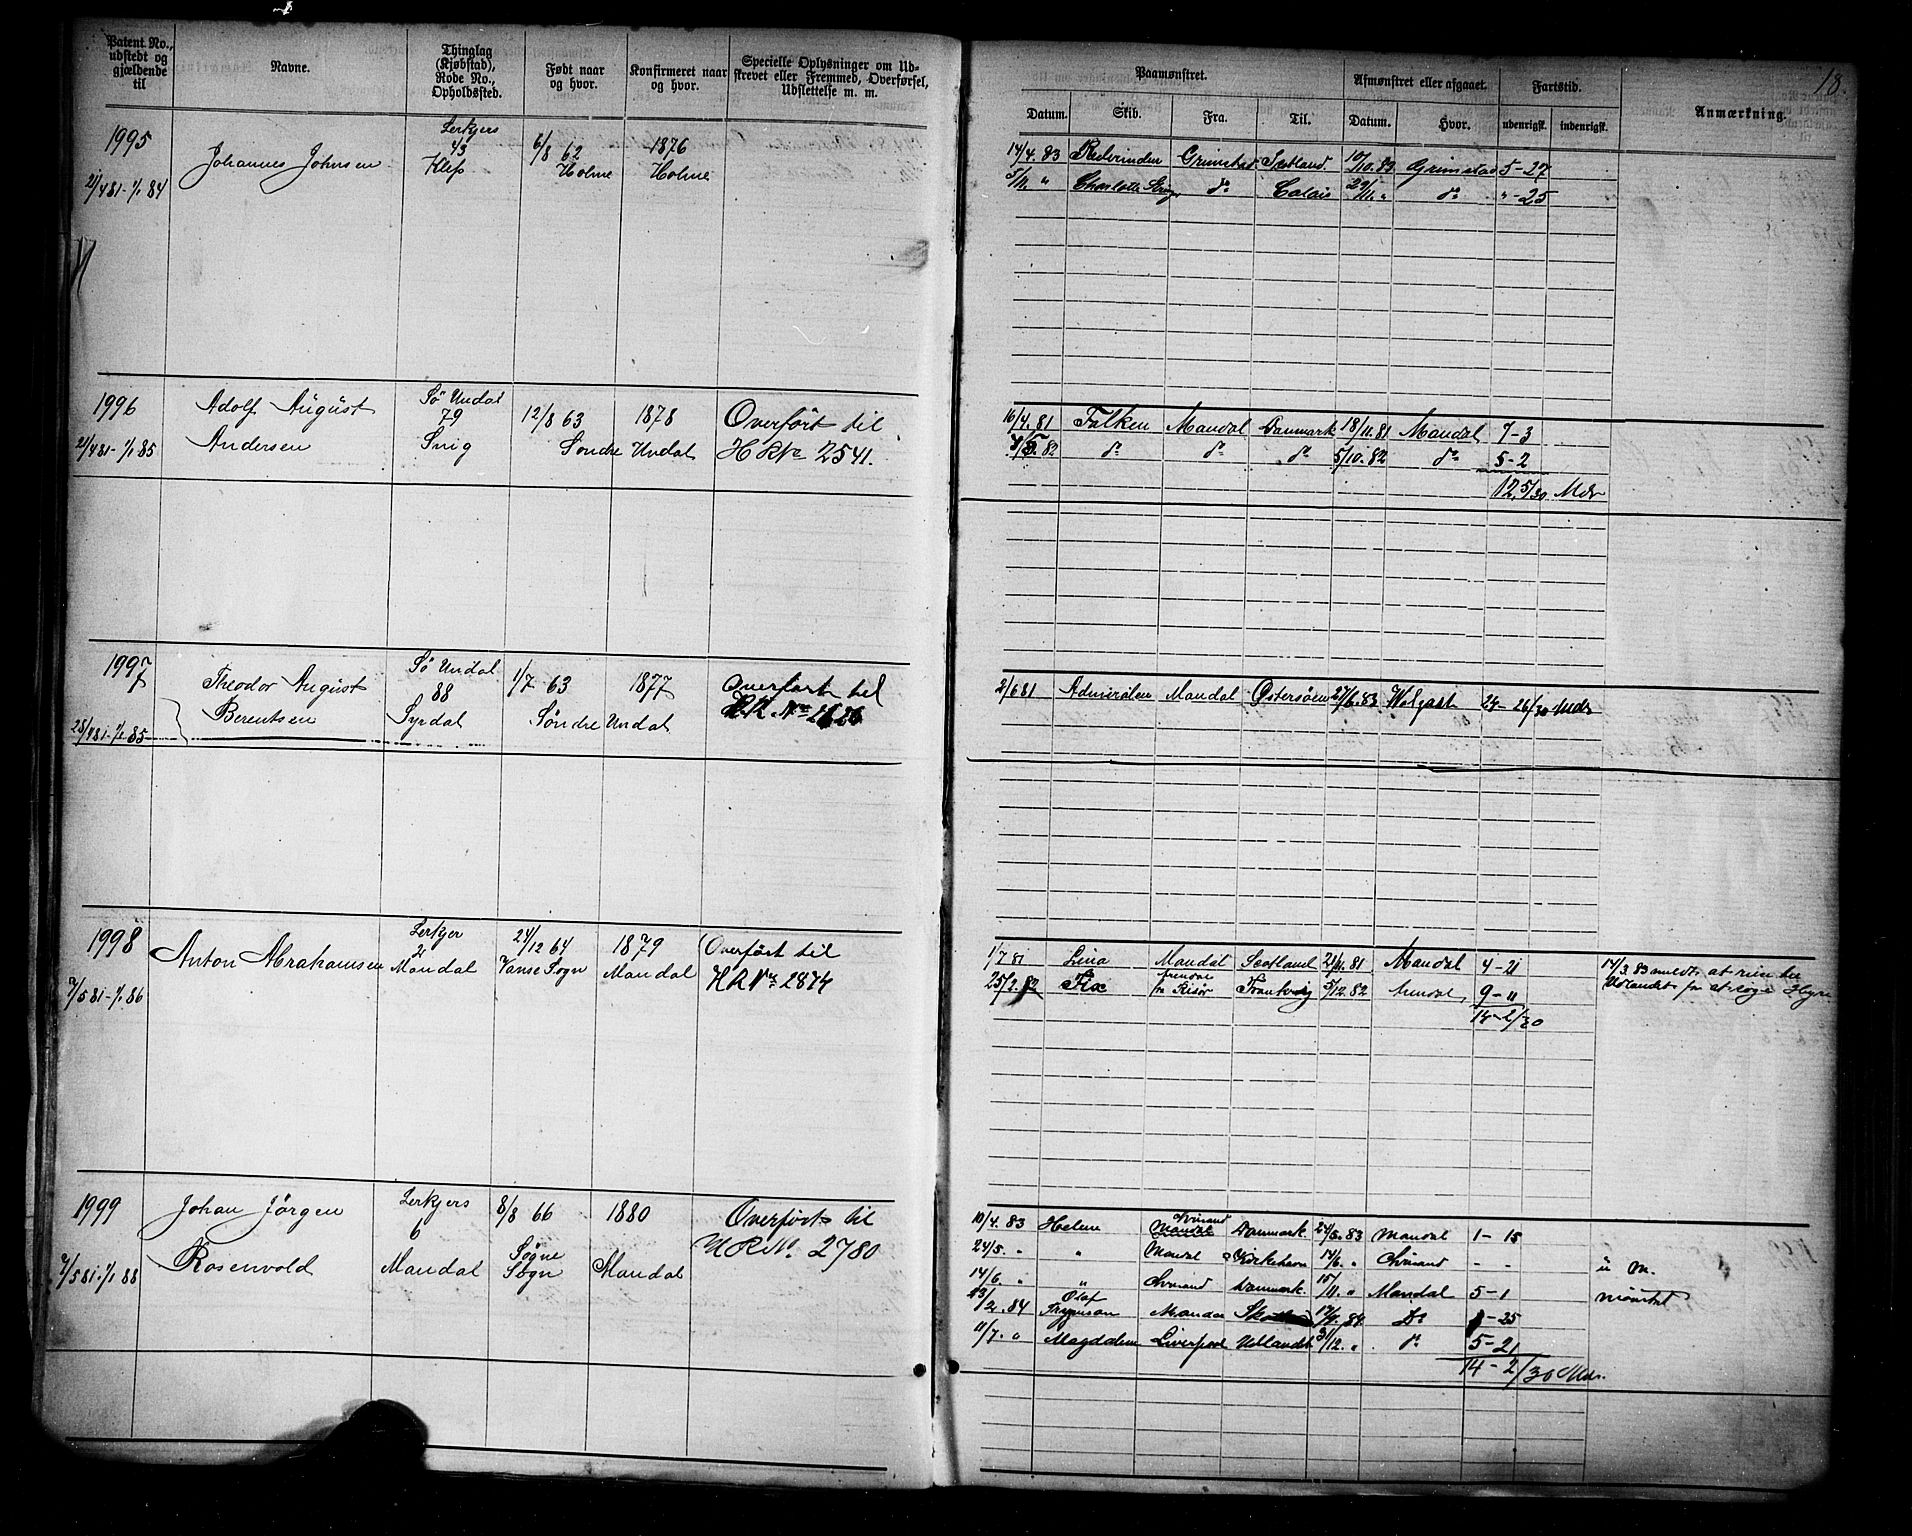 Patent. No., udstedt og gjældende til
Navne.
Thinglag (Kjøbstad), Rode No., Opholdssted.
Født naar og hvor.
Konfirmeret naar og hvor.
Specielle Oplysninger om Udskrevet eller Fremmed, Overførsel, Udslettelse m. m.
Paamønstret.
Afmønstret eller afgaaet.
Fartstid.
Anmærkning.
18.
Datum.
Skib.
Fra.
Til.
Datum.
Hvor.
udenrigsk.
indenrigsk.
1995
21/4 81 - 1/1 84
Johannes Johnsen
Lerkjers
43
Klep
6/8 62
Holme
1876
Holme
14/4. 83 Grimstad Scotland. 10/10. 83 Grimstad 5 - 27
5/11. " do Calais 29/11. " do " - 25
1996
21/4 81 - 1/1 85
Adolf August
Andersen
Sø Undal
79
Snig
12/8 63
1878
Søndre Undal
Overført til
H R No 2541.
16/4. 81 Falken Mandal Danmark 18/11. 81 Mandal 7 - 3
82 do do do 5/10. 82 do 5 - 2
12, 5/30 Mdr
1997
7
28/4 81 - 1/1 85
Theodor August
Berentsen
Sø Undal
88
Syrdal
1/7 63
1877
Søndre Undal
Overført til
H.R. No
2/6 81 Admiralen Mandal Østersøen 27/6. 83 Wolgast 24 - 26/30 Mdr
1998
7/5 81 - 1/1 86
Anton Abrahamsen
Lerkjer
2
Mandal
24/12 64
Vanse Sogn
1879
Mandal
Overført til
H R No 2874
1/7 81 Lina Mandal Scotland 21/11. 81 Mandal 4 - 21
14/3. 83 meldt at
25/2. 82 Fix Arendal fra Risør 5/12. 82 Arendal, 9 - 11
Udlandet for at søge Hyre
14 - 2/30
1999
7/5 81 - 1/1 88
Johan Jörgen
Rosenvold
Lerkjers
6
Mandal
8/8 66
Søgne
Sogn
1880
Mandal
Overført til
H R No. 2780
10/4. 83 Helene Mandal Danmark 24/5. 83 Mandal 1 - 15
24/5. " " Mandal 14/6. " - -
14/6. " " Danmark 15/11. " Mandal 5 - 1
mønstret
23/2. 84 Olaf Trygvason 84. Do - 25
11/7. " Magdalene Liverpool Udlandet 3/12. " do 5 - 21
14 - 2/30 Mdr.